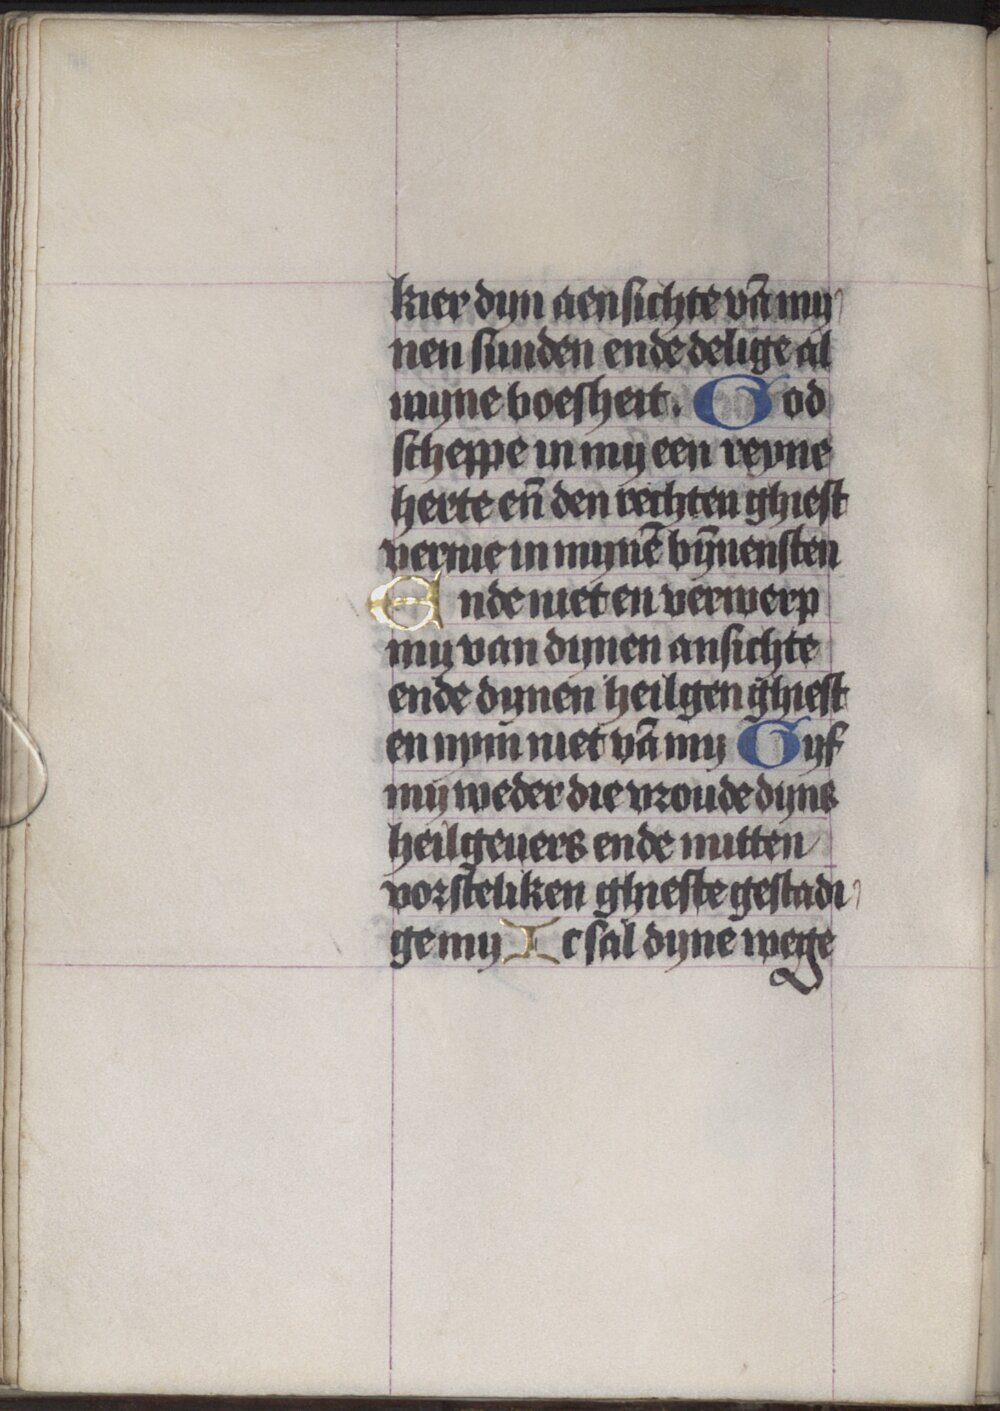 kier dyn aensichte vā my
nen sunden ende delige al
myne boesheit. God
scheppe in my een reyne
herte en̄ den rechten ghiest
vernie in mynē bȳnensten
Ende niet en verwerp
my van dynen ansichte
ende dynen heilgen ghiest
en nym niet vā my Gyf
my weder die vroude dyns
heilgeuers ende mitten
vorsteliken ghieste gestadi
ge my Ic sal dyne wege